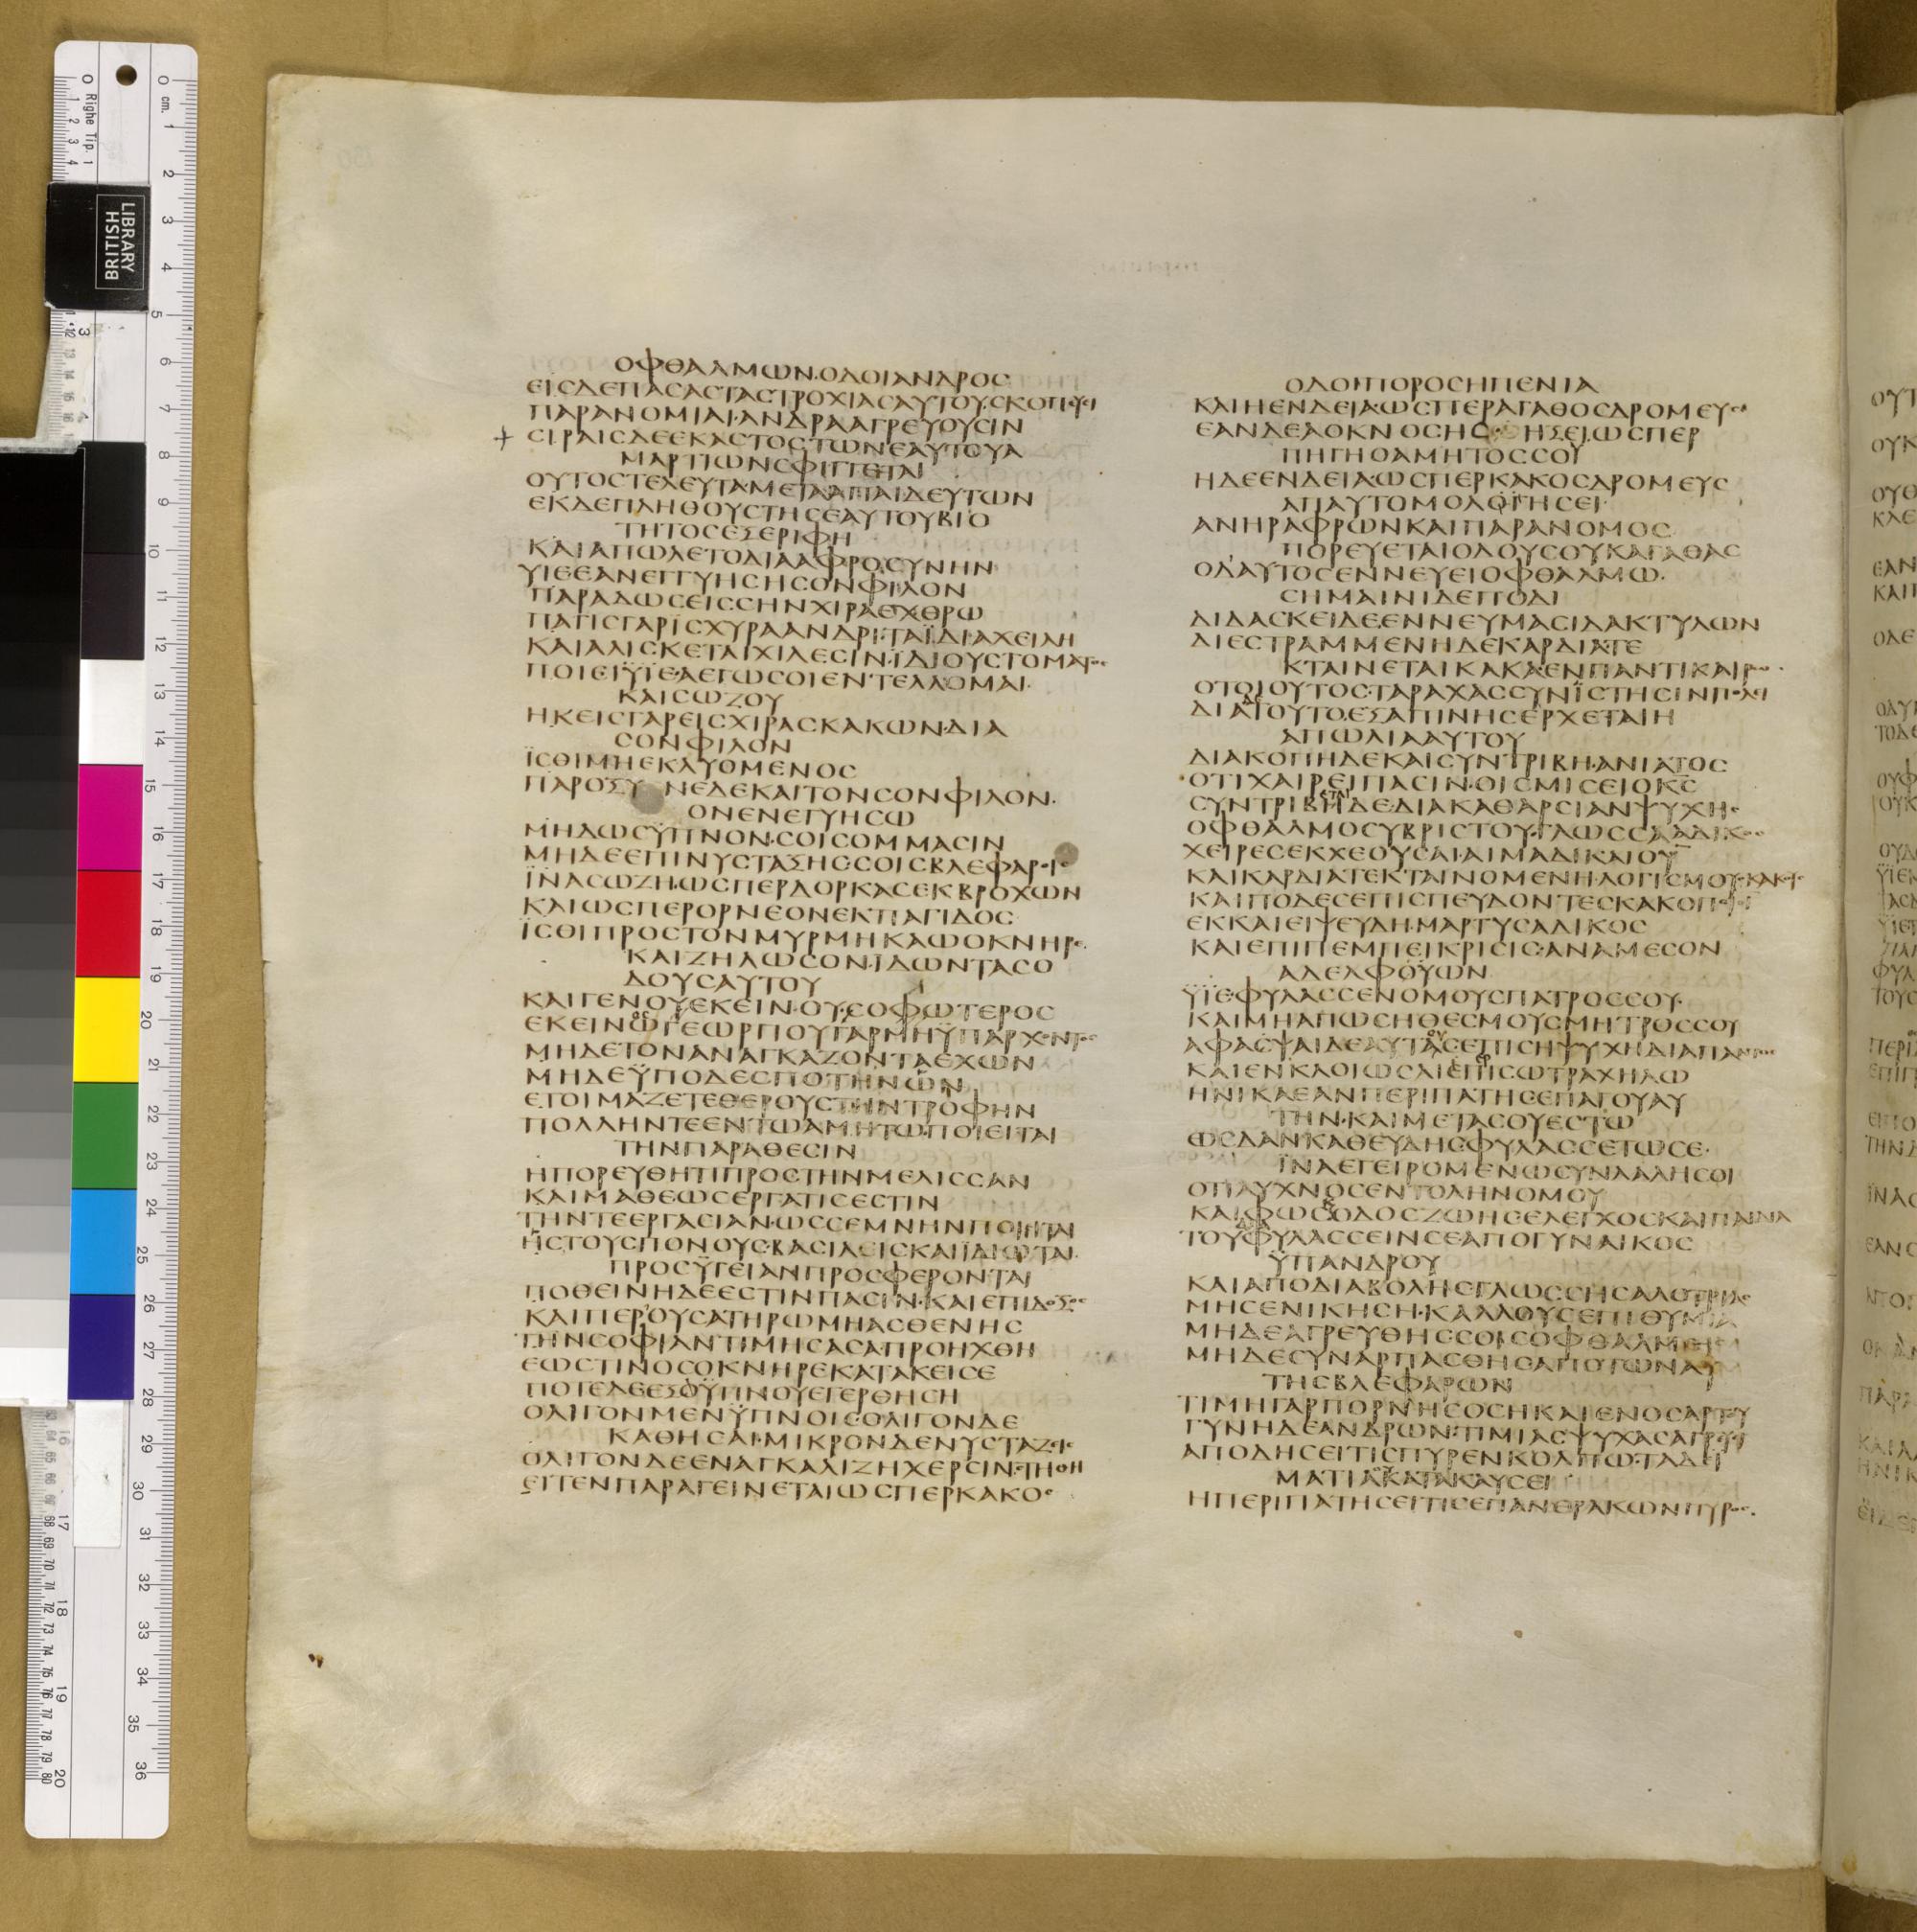 ΟΦΘΑΛΜΩΝ·ΟΔΟΙΑΝΔΡΟΣ
ΕΙΣΔΕΠΑΣΑΣΤΑΣΤΡΟΧΙΑΣΑΥΤΟΥ·ΣΚΟΠΕΥΕΙ
ΠΑΡΑΝΟΜΙΑΙ·ΑΝΔΡΑΑΓΡΕΥΟΥΣΙΝ
ΣΙΡΑΙΣΔΕΕΚΑΣΤΟΣΤΩΝΕΑΥΤΟΥΑ
ΜΑΡΤΙΩΝΣΦΙΓΓΕΤΑΙ
ΟΥΤΟΣΤΕΛΕΥΤΑΜΕΤΑΑΠΑΙΔΕΥΤΩΝ
ΕΚΔΕΠΛΗΘΟΥΣΤΗΣΕΑΥΤΟΥΒΙΟ
ΤΗΤΟΣΕΞΕΡΙΦΗ
ΚΑΙΑΠΩΛΕΤΟΔΙΑΑΦΡΟΣΥΝΗΝ
ΥΙΕΕΑΝΕΓΓΥΗΣΗΣΟΝΦΙΛΟΝ
ΠΑΡΑΔΩΣΕΙΣΣΗΝΧΙΡΑΕΧΘΡΩ
ΠΑΓΙΣΓΑΡΪΣΧΥΡΑΑΝΔΡΙ·ΤΑΪΔΙΑΧΕΙΛΗ
ΚΑΙΑΛΙΣΚΕΤΑΙΧΙΛΕΣΙΝ·ΪΔΙΟΥΣΤΟΜΑΤΟΣ
ΠΟΙΕΙΫΙΕ·ΑΕΓΩΣΟΙΕΝΤΕΛΛΟΜΑΙ·
ΚΑΙΣΩΖΟΥ
ΗΚΕΙΣΓΑΡΕΙΣΧΙΡΑΣΚΑΚΩΝ·ΔΙΑ
ΣΟΝΦΙΛΟΝ
ΪΣΘΙΜΗΕΚΛΥΟΜΕΝΟΣ
ΠΑΡΟΞΥΝΕΔΕΚΑΙΤΟΝΣΟΝΦΙΛΟΝ·
ΟΝΕΝΕΓΥΗΣΩ
ΜΗΔΩΣΫΠΝΟΝ·ΣΟΙΣΟΜΜΑΣΙΝ
ΜΗΔΕΕΠΙΝΥΣΤΑΞΗΣΣΟΙΣΒΛΕΦΑΡΟΙΣ
ΪΝΑΣΩΖΗ·ΩΣΠΕΡΔΟΡΚΑΣΕΚΒΡΟΧΩΝ
ΚΑΙΩΣΠΕΡΟΡΝΕΟΝΕΚΠΑΓΙΔΟΣ
ΪΣΘΙΠΡΟΣΤΟΝΜΥΡΜΗΚΑΩΟΚΝΗΡΕ·
ΚΑΙΖΗΛΩΣΟΝ·ΪΔΩΝΤΑΣΟ
ΔΟΥΣΑΥΤΟΥ
ΚΑΙΓΕΝΟΥΕΚΕΙΝΟΥ·ΣΟΦΩΤΕΡΟΣ
ΕΚΕΙΝΩΓΕΩΡΓΙΟΥΓΑΡΜΗΫΠΑΡΧΟΝΤΟΣ
ΜΗΔΕΤΟΝΑΝΑΓΚΑΖΟΝΤΑΕΧΩΝ
ΜΗΔΕΫΠΟΔΕΣΠΟΤΗΝΩΝ
ΕΤΟΙΜΑΖΕΤΕΘΕΡΟΥΣΤΗΝΤΡΟΦΗΝ
ΠΟΛΛΗΝΤΕΕΝΤΩΑΜΗΤΩ·ΠΟΙΕΙΤΑΙ
ΤΗΝΠΑΡΑΘΕΣΙΝ
ΗΠΟΡΕΥΘΗΤΙΠΡΟΣΤΗΝΜΕΛΙΣΣΑΝ
ΚΑΙΜΑΘΕΩΣΕΡΓΑΤΙΣΕΣΤΙΝ
ΤΗΝΤΕΕΡΓΑΣΙΑΝ·ΩΣΣΕΜΝΗΝΠΟΙΗΤΑΙ
ΗΣΤΟΥΣΠΟΝΟΥΣ·ΒΑΣΙΛΕΙΣΚΑΙΪΔΙΩΤΑΙ
ΠΡΟΣΫΓΕΙΑΝΠΡΟΣΦΕΡΟΝΤΑΙ
ΠΟΘΕΙΝΗΔΕΕΣΤΙΝΠΑΣΙΝ·ΚΑΙΕΠΙΔΟΞΟΣ
ΚΑΙΠΕΡΟΥΣΑΤΗΡΩΜΗΑΣΘΕΝΗΣ
ΤΗΝΣΟΦΙΑΝΤΙΜΗΣΑΣΑΠΡΟΗΧΘΗ
ΕΩΣΤΙΝΟΣΟΚΝΗΡΕΚΑΤΑΚΕΙΣΕ
ΠΟΤΕΔΕΕΞΟΫΠΝΟΥΕΓΕΡΘΗΣΗ
ΟΛΙΓΟΝΜΕΝΫΠΝΟΙΣΟΛΙΓΟΝΔΕ
ΚΑΘΗΣΑΙ·ΜΙΚΡΟΝΔΕΝΥΣΤΑΖΕΙΣ
ΟΛΙΓΟΝΔΕΕΝΑΓΚΑΛΙΖΗΧΕΡΣΙΝ·ΤΗΘΗ
ΕΙΤΕΝΠΑΡΑΓΕΙΝΕΤΑΙΩΣΠΕΡΚΑΚΟΣ
ΟΔΟΙΠΟΡΟΣΗΠΕΝΙΑ
ΚΑΙΗΕΝΔΕΙΑ·ΩΣΠΕΡΑΓΑΘΟΣΔΡΟΜΕΥΣ
ΕΑΝΔΕΑΟΚΝΟΣΗΣ ΗΞΕΙ·ΩΣΠΕΡ
ΠΗΓΗΟΑΜΗΤΟΣΣΟΥ
ΗΔΕΕΝΔΕΙΑ·ΩΣΠΕΡΚΑΚΟΣΔΡΟΜΕΥΣ
ΑΠΑΥΤΟΜΟΛΟΓΗΣΕΙ·
ΑΝΗΡΑΦΡΩΝΚΑΙΠΑΡΑΝΟΜΟΣ
ΠΟΡΕΥΕΤΑΙΟΔΟΥΣΟΥΚΑΓΑΘΑΣ
ΟΔΑΥΤΟΣΕΝΝΕΥΕΙΟΦΘΑΛΜΩ·
ΣΗΜΑΙΝΙΔΕΠΟΔΙ
ΔΙΔΑΣΚΕΙΔΕΕΝΝΕΥΜΑΣΙΔΑΚΤΥΛΩΝ
ΔΙΕΣΤΡΑΜΜΕΝΗΔΕΚΑΡΔΙΑ·ΤΕ
ΚΤΑΙΝΕΤΑΙΚΑΚΑ·ΕΝΠΑΝΤΙΚΑΙΡΩ·
ΟΤΟΙΟΥΤΟΣ·ΤΑΡΑΧΑΣΣΥΝΪΣΤΗΣΙΝΠΟΛΕΙ
ΔΙΑΤΟΥΤΟ·ΕΞΑΠΙΝΗΣΕΡΧΕΤΑΙΗ
ΑΠΩΛΙΑΑΥΤΟΥ
ΔΙΑΚΟΠΗΔΕΚΑΙΣΥΝΤΡΙΒΗ·ΑΝΙΑΤΟΣ
ΟΤΙΧΑΙΡΕΙΠΑΣΙΝ·ΟΙΣΜΙΣΕΙΟΚΣ
ΣΥΝΤΡΙΒΗΔΕ·ΔΙΑΚΑΘΑΡΣΙΑΝΨΥΧΗΣ
ΟΦΘΑΛΜΟΣΥΒΡΙΣΤΟΥ·ΓΛΩΣΣΑΑΔΙΚΟΣ
ΧΕΙΡΕΣΕΚΧΕΟΥΣΑΙ·ΑΙΜΑΔΙΚΑΙΟΥ
ΚΑΙΚΑΡΔΙΑΤΕΚΤΑΙΝΟΜΕΝΗ·ΛΟΓΙΣΜΟΥΣΚΑΚΟΥΣ
ΚΑΙΠΟΔΕΣΕΠΙΣΠΕΥΔΟΝΤΕΣΚΑΚΟΠΟΙΕΙ
ΕΚΚΑΙΕΙΨΕΥΔΗ·ΜΑΡΤΥΣΑΔΙΚΟΣ
ΚΑΙΕΠΙΠΕΜΠΕΙΚΡΙΣΙΣ·ΑΝΑΜΕΣΟΝ
ΑΔΕΛΦΟΫΩΝ
ΫΪΕ·ΦΥΛΑΣΣΕΝΟΜΟΥΣΠΑΤΡΟΣΣΟΥ·
ΚΑΙΜΗΑΠΩΣΗΘΕΣΜΟΥΣΜΗΤΡΟΣΣΟΥ
ΑΦΑΨΑΙΔΕΑΥΤΑΣΕΠΙΣΗΨΥΧΗΔΙΑΠΑΝΤΟΣ
ΚΑΙΕΝΚΛΟΙΩΣΑΙΕΠΙΣΩΤΡΑΧΗΛΩ
ΗΝΙΚΑΕΑΝΠΕΡΙΠΑΤΗΣΕΠΑΓΟΥΑΥ
ΤΗΝ·ΚΑΙΜΕΤΑΣΟΥΕΣΤΩ
ΩΣΔΑΝΚΑΘΕΥΔΗΣΦΥΛΑΣΣΕΤΩΣΕ·
ΪΝΑΕΓΕΙΡΟΜΕΝΩΣΥΝΛΑΛΗΣΟΙ
ΟΤΙΛΥΧΝΟΣΕΝΤΟΛΗΝΟΜΟΥ
ΚΑΙΦΩΣΟΔΟΣΖΩΗΣΕΛΕΓΧΟΣΚΑΙΠΑΙΔΙΑ
ΤΟΥΦΥΛΑΣΣΕΙΝΣΕΑΠΟΓΥΝΑΙΚΟΣ
ΫΠΑΝΔΡΟΥ
ΚΑΙΑΠΟΔΙΑΒΟΛΗΣΓΛΩΣΣΗΣΑΛΟΤΡΙΑΣ
ΜΗΣΕΝΙΚΗΣΗ·ΚΑΛΛΟΥΣΕΠΙΘΥΜΙΑ
ΜΗΔΕΑΓΡΕΥΘΗΣΣΟΙΣΟΦΘΑΛΜΟΙΣ
ΜΗΔΕΣΥΝΑΡΠΑΣΘΗΣΑΠΟΤΩΝΑΥ
ΤΗΣΒΛΕΦΑΡΩΝ
ΤΙΜΗΓΑΡΠΟΡΝΗΣΟΣΗΚΑΙΕΝΟΣΑΡΤΟΥ
ΓΥΝΗΔΕΑΝΔΡΩΝ·ΤΙΜΙΑΣΨΥΧΑΣΑΓΡΕΥΕΙ
ΑΠΟΔΗΣΕΙΤΙΣΠΥΡΕΝΚΟΛΠΩ·ΤΑΔΕΪ
ΜΑΤΙΑΚΑΤΑΚΑΥΣΕΙ
ΗΠΕΡΙΠΑΤΗΣΕΙΤΙΣΕΠΑΝΘΡΑΚΩΝΠΥΡΟΣ·